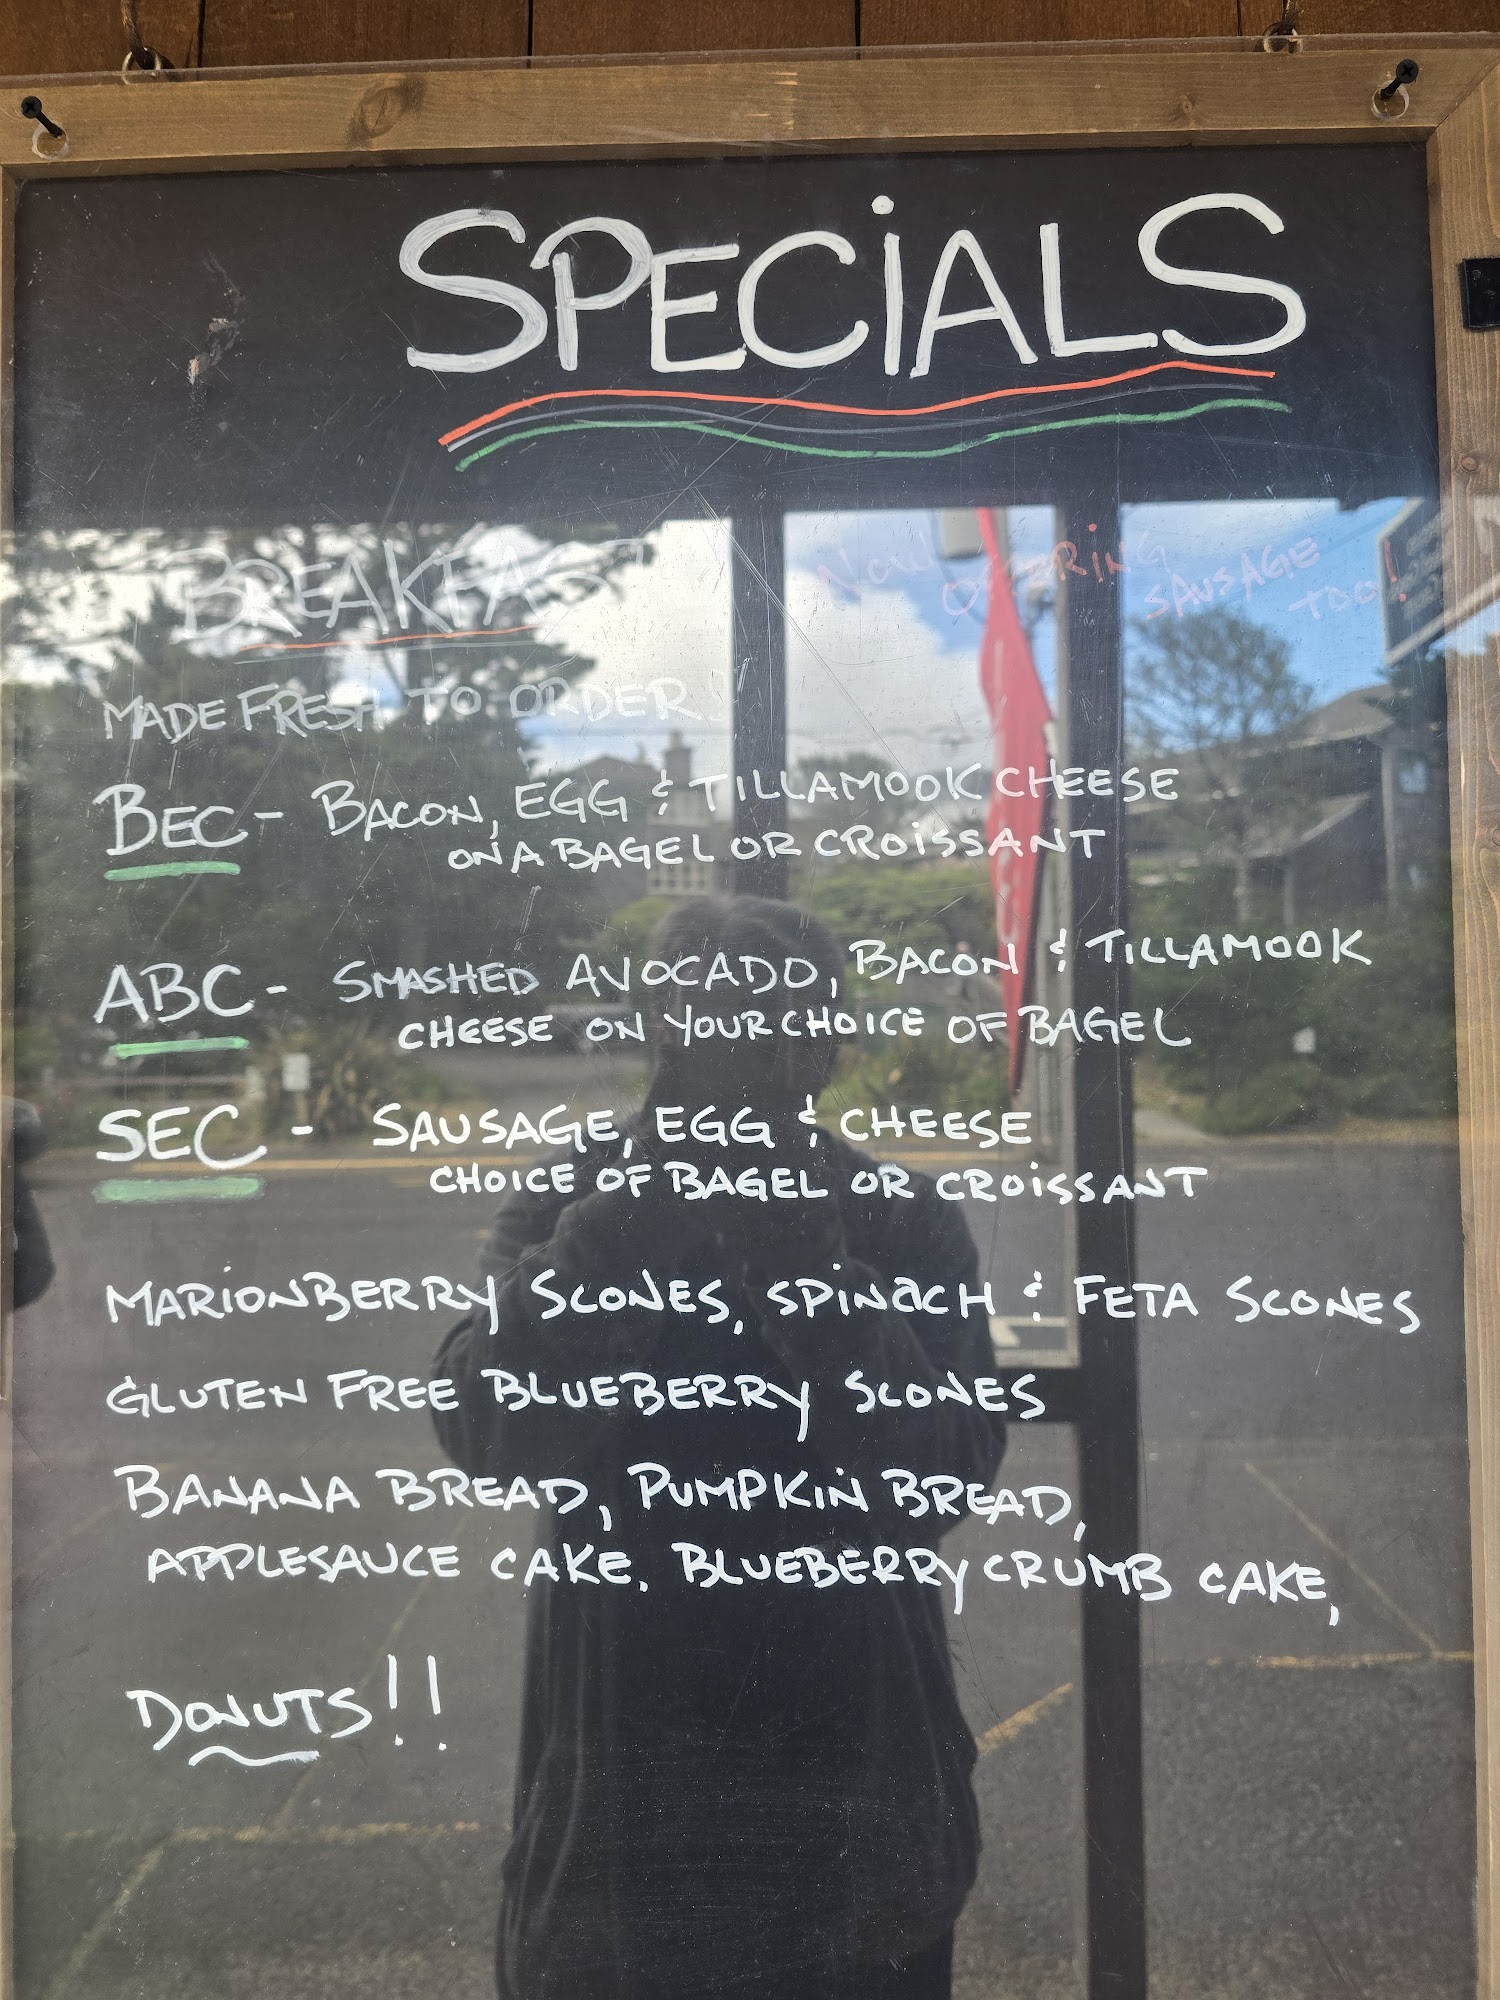 SPECiALS
BREAKFAST
NOW OFFERiNG SAUSAGE TOO!
MADE FRESH TO ORDER!
BEC - BACON, EGG & TILLAMOOK CHEESE
ON A BAGEL OR CROiSSANT
ABC - SMASHED AVOCADO, BACON & TILLAMOOK
CHEESE ON YOUR CHOICE OF BAGEL
SEC - SAUSAGE, EGG & CHEESE
CHOICE OF BAGEL OR CROiSSANT
MARiONBERRY SCONES, SPiNACH & FETA SCONES
GLUTEN FREE BLUEBERRY SCONES
BANANA BREAD, PUMPKiN BREAD,
APPLESAUCE CAKE, BLUEBERRY CRUMB CAKE,
DONUTS!!